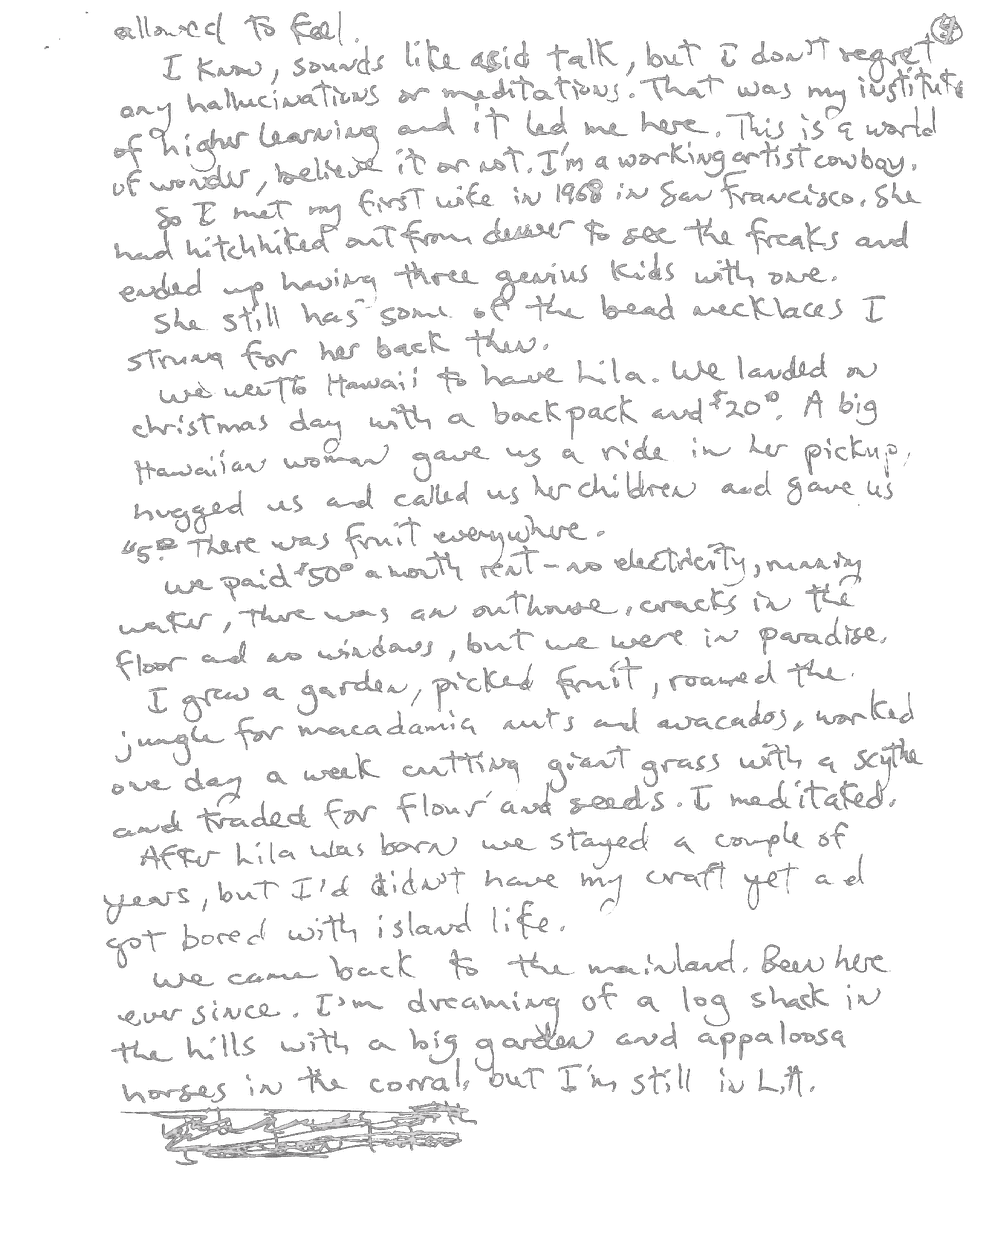 allowed to feel.
I know, sounds like asid talk, but I don't regret
any hallucinations or meditations. That was my institute
of higher learning and it led me here. This is a world
of wonder, believe it or not. I'm a working artist cowboy.
So I met my first wife in 1968 in San Francisco. She
had hitchhiked out from denver to see the freaks and
ended up having three genius kids with one.
She still has some of the bead necklaces I
strung for her back then.
We went to Hawaii to have Lila. We landed on
christmas day with a backpack and $20⁰⁰. A big
Hawaiian woman gave us a ride in her pickup,
hugged us and called us her children and gave us
$5⁰⁰. There was fruit everywhere.
We paid $50⁰⁰ a month rent - no electricity, running
water, there was an outhouse, cracks in the
floor and no windows, but we were in paradise.
I grew a garden, picked fruit, roamed the
jungle for macadamia nuts and avacados, worked
one day a week cutting giant grass with a scythe
and traded for flour and seeds. I meditated.
After Lila was born we stayed a couple of
years, but I'd didn't have my craft yet ad
got bored with island life.
We came back to the mainland. Been here
ever since. I'm dreaming of a log shack in
the hills with a big garden and appaloosa
horses in the corral, but I'm still in L.A.